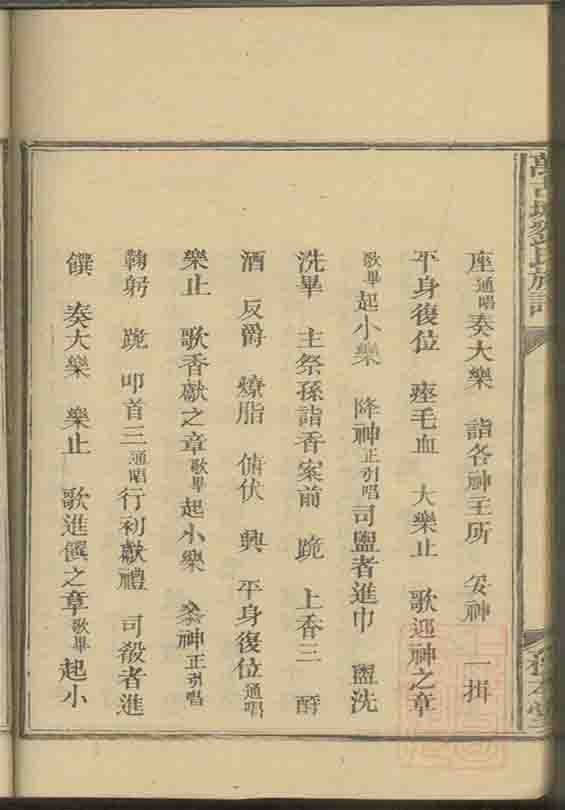 座通唱奏大樂 詣各神主所 安神 一揖
平身復位 瘞毛血 大樂止 歌迎神之章
歌畢起小樂 降神正引唱司盥者進巾 盥洗
洗畢 主祭孫詣香案前 跪 上香三 酹
酒 反爵 燎脂 俯伏 興 平身復位通唱
樂止 歌香獻之章歌畢起小樂 叅神正引唱
鞠躬 跪 叩首三通唱行初獻禮 司殽者進
饌 奏大樂 樂止 歌進饌之章歌畢起小